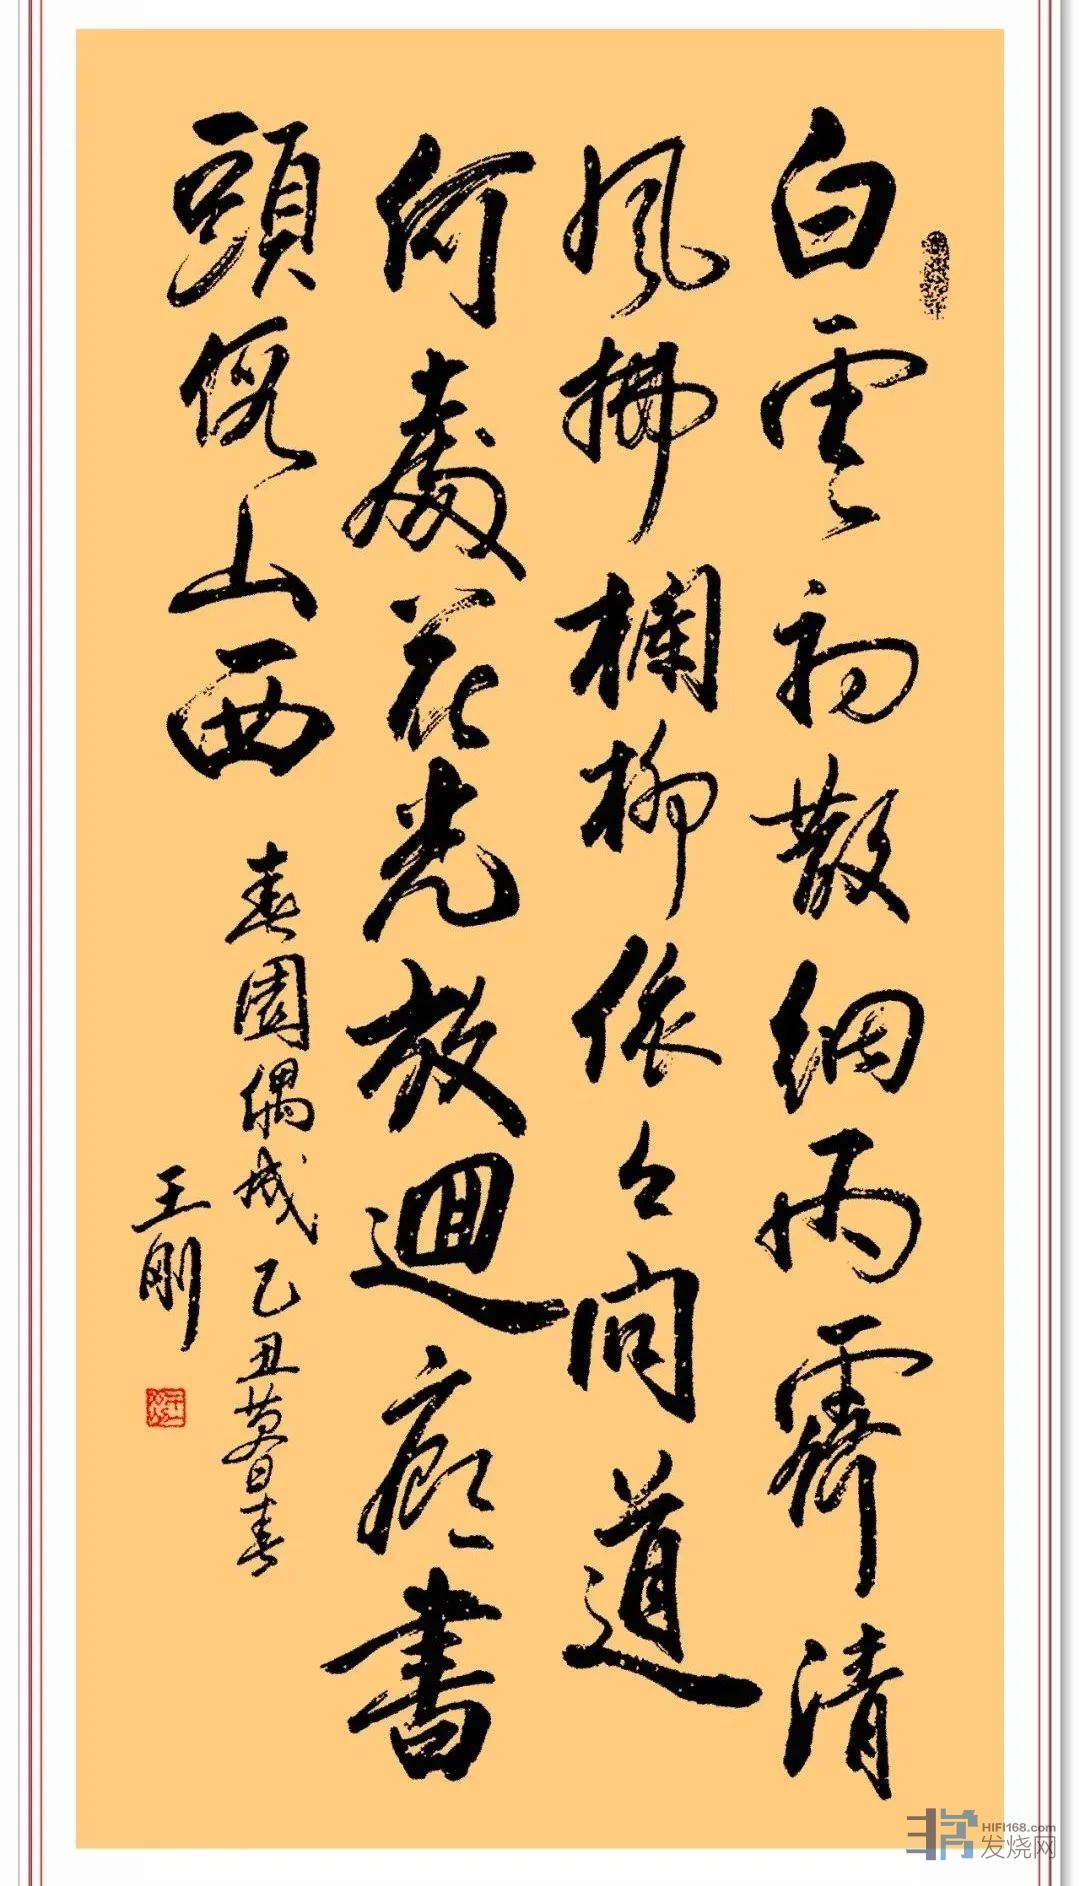 白雲初散細雨霽清
風拂欄柳依々問道
何處花光放迴廊書
頭假山西
春園偶成 己丑暮春
王刚
HIFI168.com
发烧网